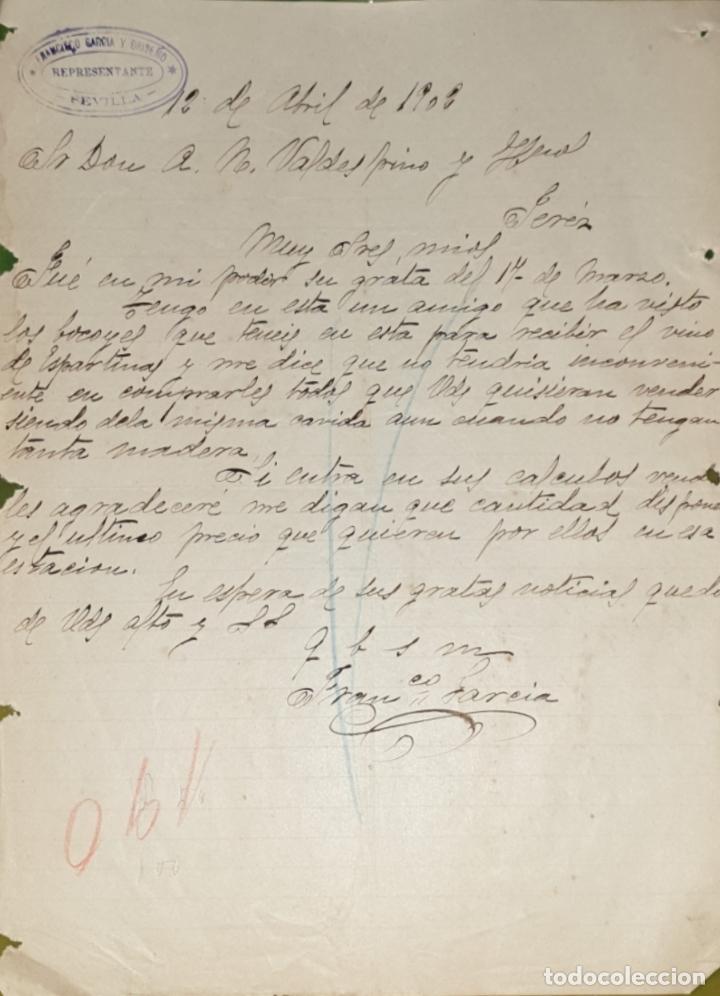 FRANCISCO GARCIA Y
REPRESENTANTE
SEVILLA
12 de Abril de 1902
Sr Don A. R. Valdespino y Hno
Jeréz
Muy Sres, mios
Fué en mi poder su grata del 17 de Marzo.
Tengo en esta un amigo que ha visto
los bocoyes que teneis en esta para recibir el vino
de Espartinas y me dice que no tendria inconveni-
ente en comprarles todos que Vds quisieran vender
siendo dela misma cavida aun cuando no tengan
tanta madera,
Si entra en sus calculos vender
les agradeceré me digan que cantidad dispone
y el ultimo precio que quieren por ellos en esa
estacion.
En espera de sus gratas noticias quedo
de Vds afto y SS
q b s m
Franco Garcia
todocoleccion.net